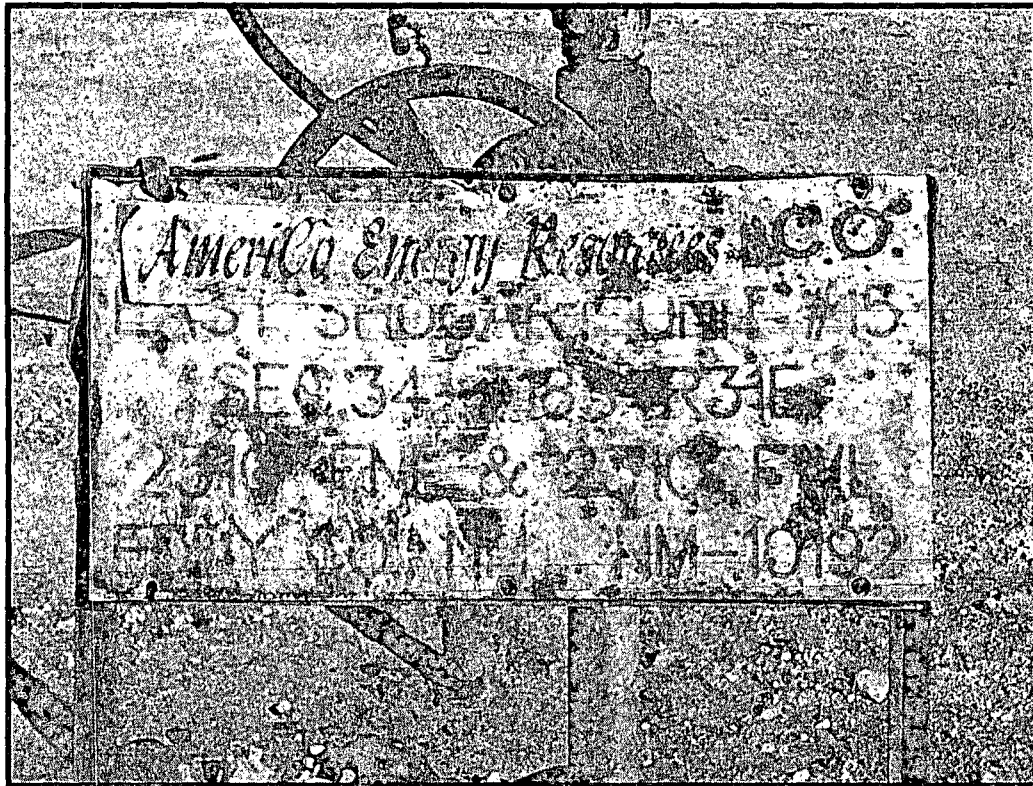 AmeriCo Energy Resources CO
EAST SHUGART UNIT #15
SEC 34 18S R31E
2310 FNL & FWL
EDDY COUNTY NM-10192